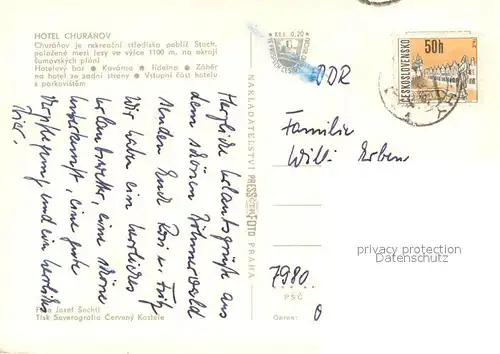 HOTEL CHURÁŇOV
Churáňov je rekreační středisko poblíž Stach,
položené mezi lesy ve výšce 1100 m. na okraji
šumavských plání
Hotelový bar • Kavárna • Jídelna • Záběr
na hotel ze zadní strany • Vstupní část hotelu
s parkovištěm
Herzliche Urlaubsgrüße aus
dem schönen Böhmerwald
senden Euch Rosi u. Fritz
Wir haben ein herrliches
Urlaubswetter, eine schöne
Unterkunft, eine gute
Verpflegung und ein herrliches
Hotel.
Foto Josef Sechtl
Tisk Severografia Červený Kostelec
NAKLADATELSTVÍ PRESSFOTO PRAHA
0,20
ČESKOSLOVENSKO
50h
DDR
Familie
Willi Erben
7980
PSČ
Okres:
privacy protection
Datenschutz